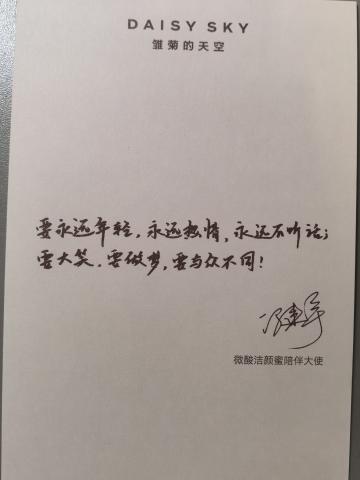 DAISY SKY
雏菊的天空
要永远年轻，永远热情，永远不听话；
要大笑，要做梦，要与众不同！
微酸洁颜蜜陪伴大使